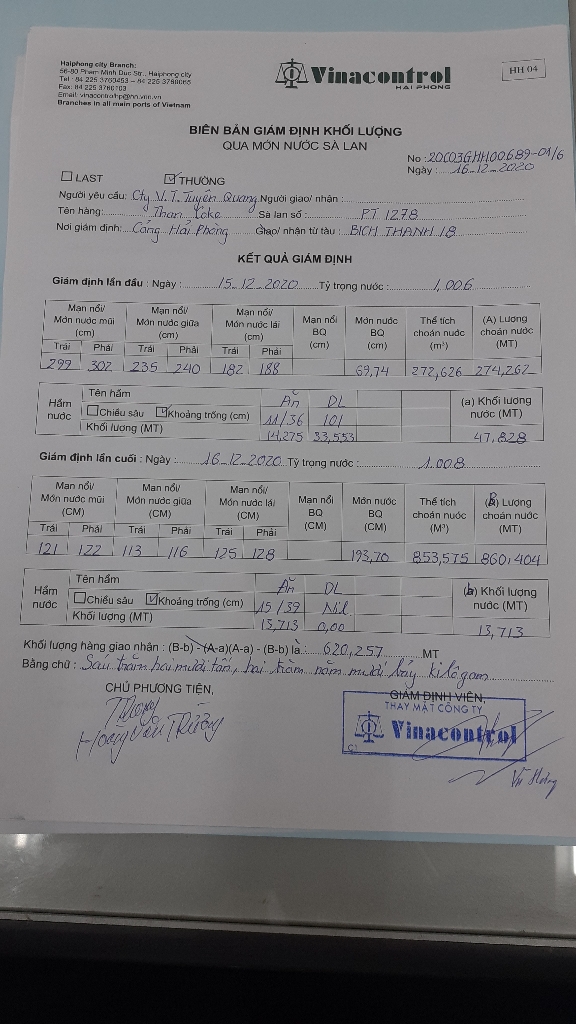 Haiphong city Branch:
56-80 Pham Minh Duc Str., Haiphong city
Tel : 84 225 3760453 – 84 225 3760065
Fax: 84 225 3760103
Email: vinacontrolhp@hn.vnn.vn
Branches in all main ports of Vietnam
Vinacontrol
HAI PHONG
HH 04
BIÊN BẢN GIÁM ĐỊNH KHỐI LƯỢNG
QUA MÓN NƯỚC SÀ LAN
No : 20C03GHH00689-01/6
Ngày : 16-12-2020
LAST THƯỜNG
Người yêu cầu: Cty V.T. Tuyên Quang Người giao/ nhận :
Tên hàng: Than Coke Sà lan số : PT 1278
Nơi giám định: Cảng Hải Phòng Giao/ nhận từ tàu : BICH THANH 18
KẾT QUẢ GIÁM ĐỊNH
Giám định lần đầu : Ngày : 15-12-2020 Tỷ trọng nước : 1,006
Mạn nổi/ Món nước mũi (cm) Mạn nổi/ Món nước giữa (cm) Mạn nổi/ Món nước lái (cm) Mạn nổi BQ (cm) Món nước BQ (cm) Thể tích choán nước (m³) (A) Lượng choán nước (MT)
Trái Phải Trái Phải Trái Phải
299 302 235 240 182 188 69,74 272,626 274,262
Hầm nước Tên hầm Ăn DL (a) Khối lượng nước (MT)
Chiều sâu Khoảng trống (cm) 11/36 101
Khối lượng (MT) 14,275 33,553 47,828
Giám định lần cuối : Ngày : 16-12-2020 Tỷ trọng nước : 1.008
Mạn nổi/ Món nước mũi (CM) Mạn nổi/ Món nước giữa (CM) Mạn nổi/ Món nước lái (CM) Mạn nổi BQ (CM) Món nước BQ (CM) Thể tích choán nước (M³) (B) Lượng choán nước (MT)
Trái Phải Trái Phải Trái Phải
121 122 113 116 125 128 193,70 853,575 860,404
Hầm nước Tên hầm Ăn DL (b) Khối lượng nước (MT)
Chiều sâu Khoảng trống (cm) 15/39 Nil
Khối lượng (MT) 13,713 0,00 13,713
Khối lượng hàng giao nhận : (B-b) - (A-a)(A-a) - (B-b) là : 620,257 MT
Bằng chữ : Sáu trăm hai mươi tấn, hai trăm năm mươi bảy kilôgam
CHỦ PHƯƠNG TIỆN, GIÁM ĐỊNH VIÊN,
THAY MẶT CÔNG TY
Vinacontrol
Hoàng Văn Trường
Vũ Hưng